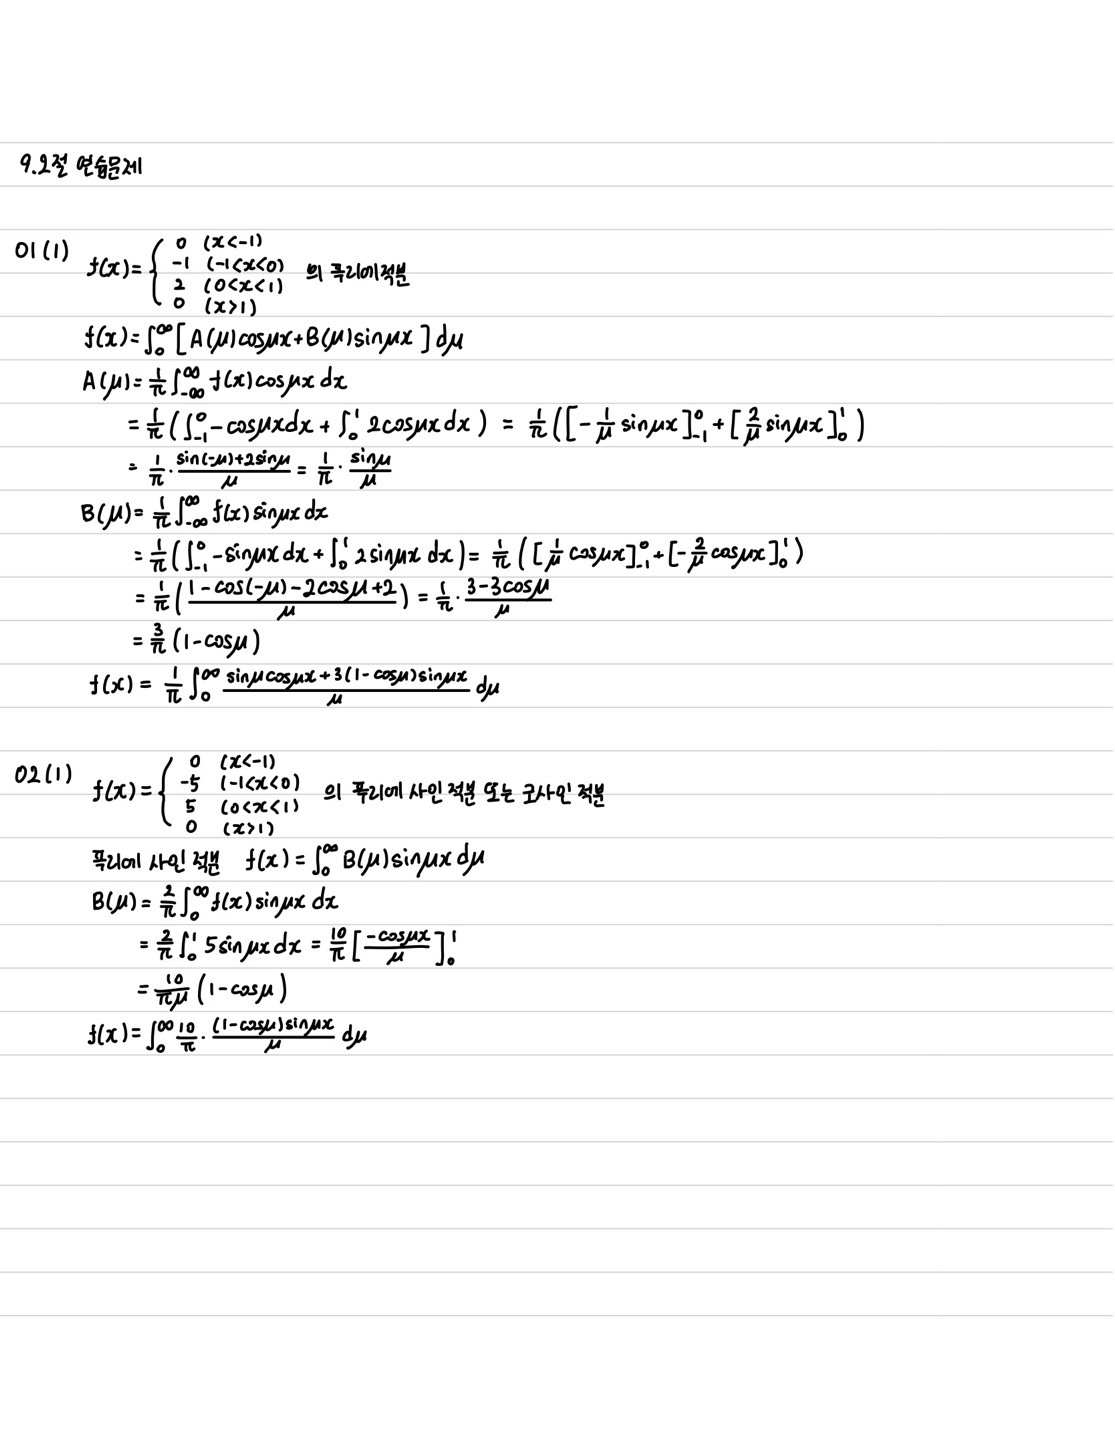 9.2절 연습문제
01(1) f(x)= { 0 (x<-1)
-1 (-1<x<0) 의 푸리에적분
2 (0<x<1)
0 (x>1)
f(x)=∫₀^∞ [A(μ)cosμx+B(μ)sinμx] dμ
A(μ)= 1/π ∫_{-∞}^∞ f(x)cosμx dx
= 1/π (∫_{-1}^0 -cosμx dx + ∫_0^1 2cosμx dx) = 1/π ([-1/μ sinμx]_{-1}^0 + [2/μ sinμx]_0^1)
= 1/π · (sin(-μ)+2sinμ)/μ = 1/π · sinμ/μ
B(μ)= 1/π ∫_{-∞}^∞ f(x)sinμx dx
= 1/π (∫_{-1}^0 -sinμx dx + ∫_0^1 2sinμx dx) = 1/π ([1/μ cosμx]_{-1}^0 + [-2/μ cosμx]_0^1)
= 1/π ((1-cos(-μ)-2cosμ+2)/μ) = 1/π · (3-3cosμ)/μ
= 3/π (1-cosμ)
f(x) = 1/π ∫_0^∞ (sinμcosμx+3(1-cosμ)sinμx)/μ dμ
02(1) f(x)= { 0 (x<-1)
-5 (-1<x<0) 의 푸리에 사인 적분 또는 코사인 적분
5 (0<x<1)
0 (x>1)
푸리에 사인 적분 f(x)=∫_0^∞ B(μ)sinμx dμ
B(μ)= 2/π ∫_0^∞ f(x)sinμx dx
= 2/π ∫_0^1 5sinμx dx = 10/π [-cosμx/μ]_0^1
= 10/πμ (1-cosμ)
f(x)=∫_0^∞ 10/π · (1-cosμ)sinμx/μ dμ